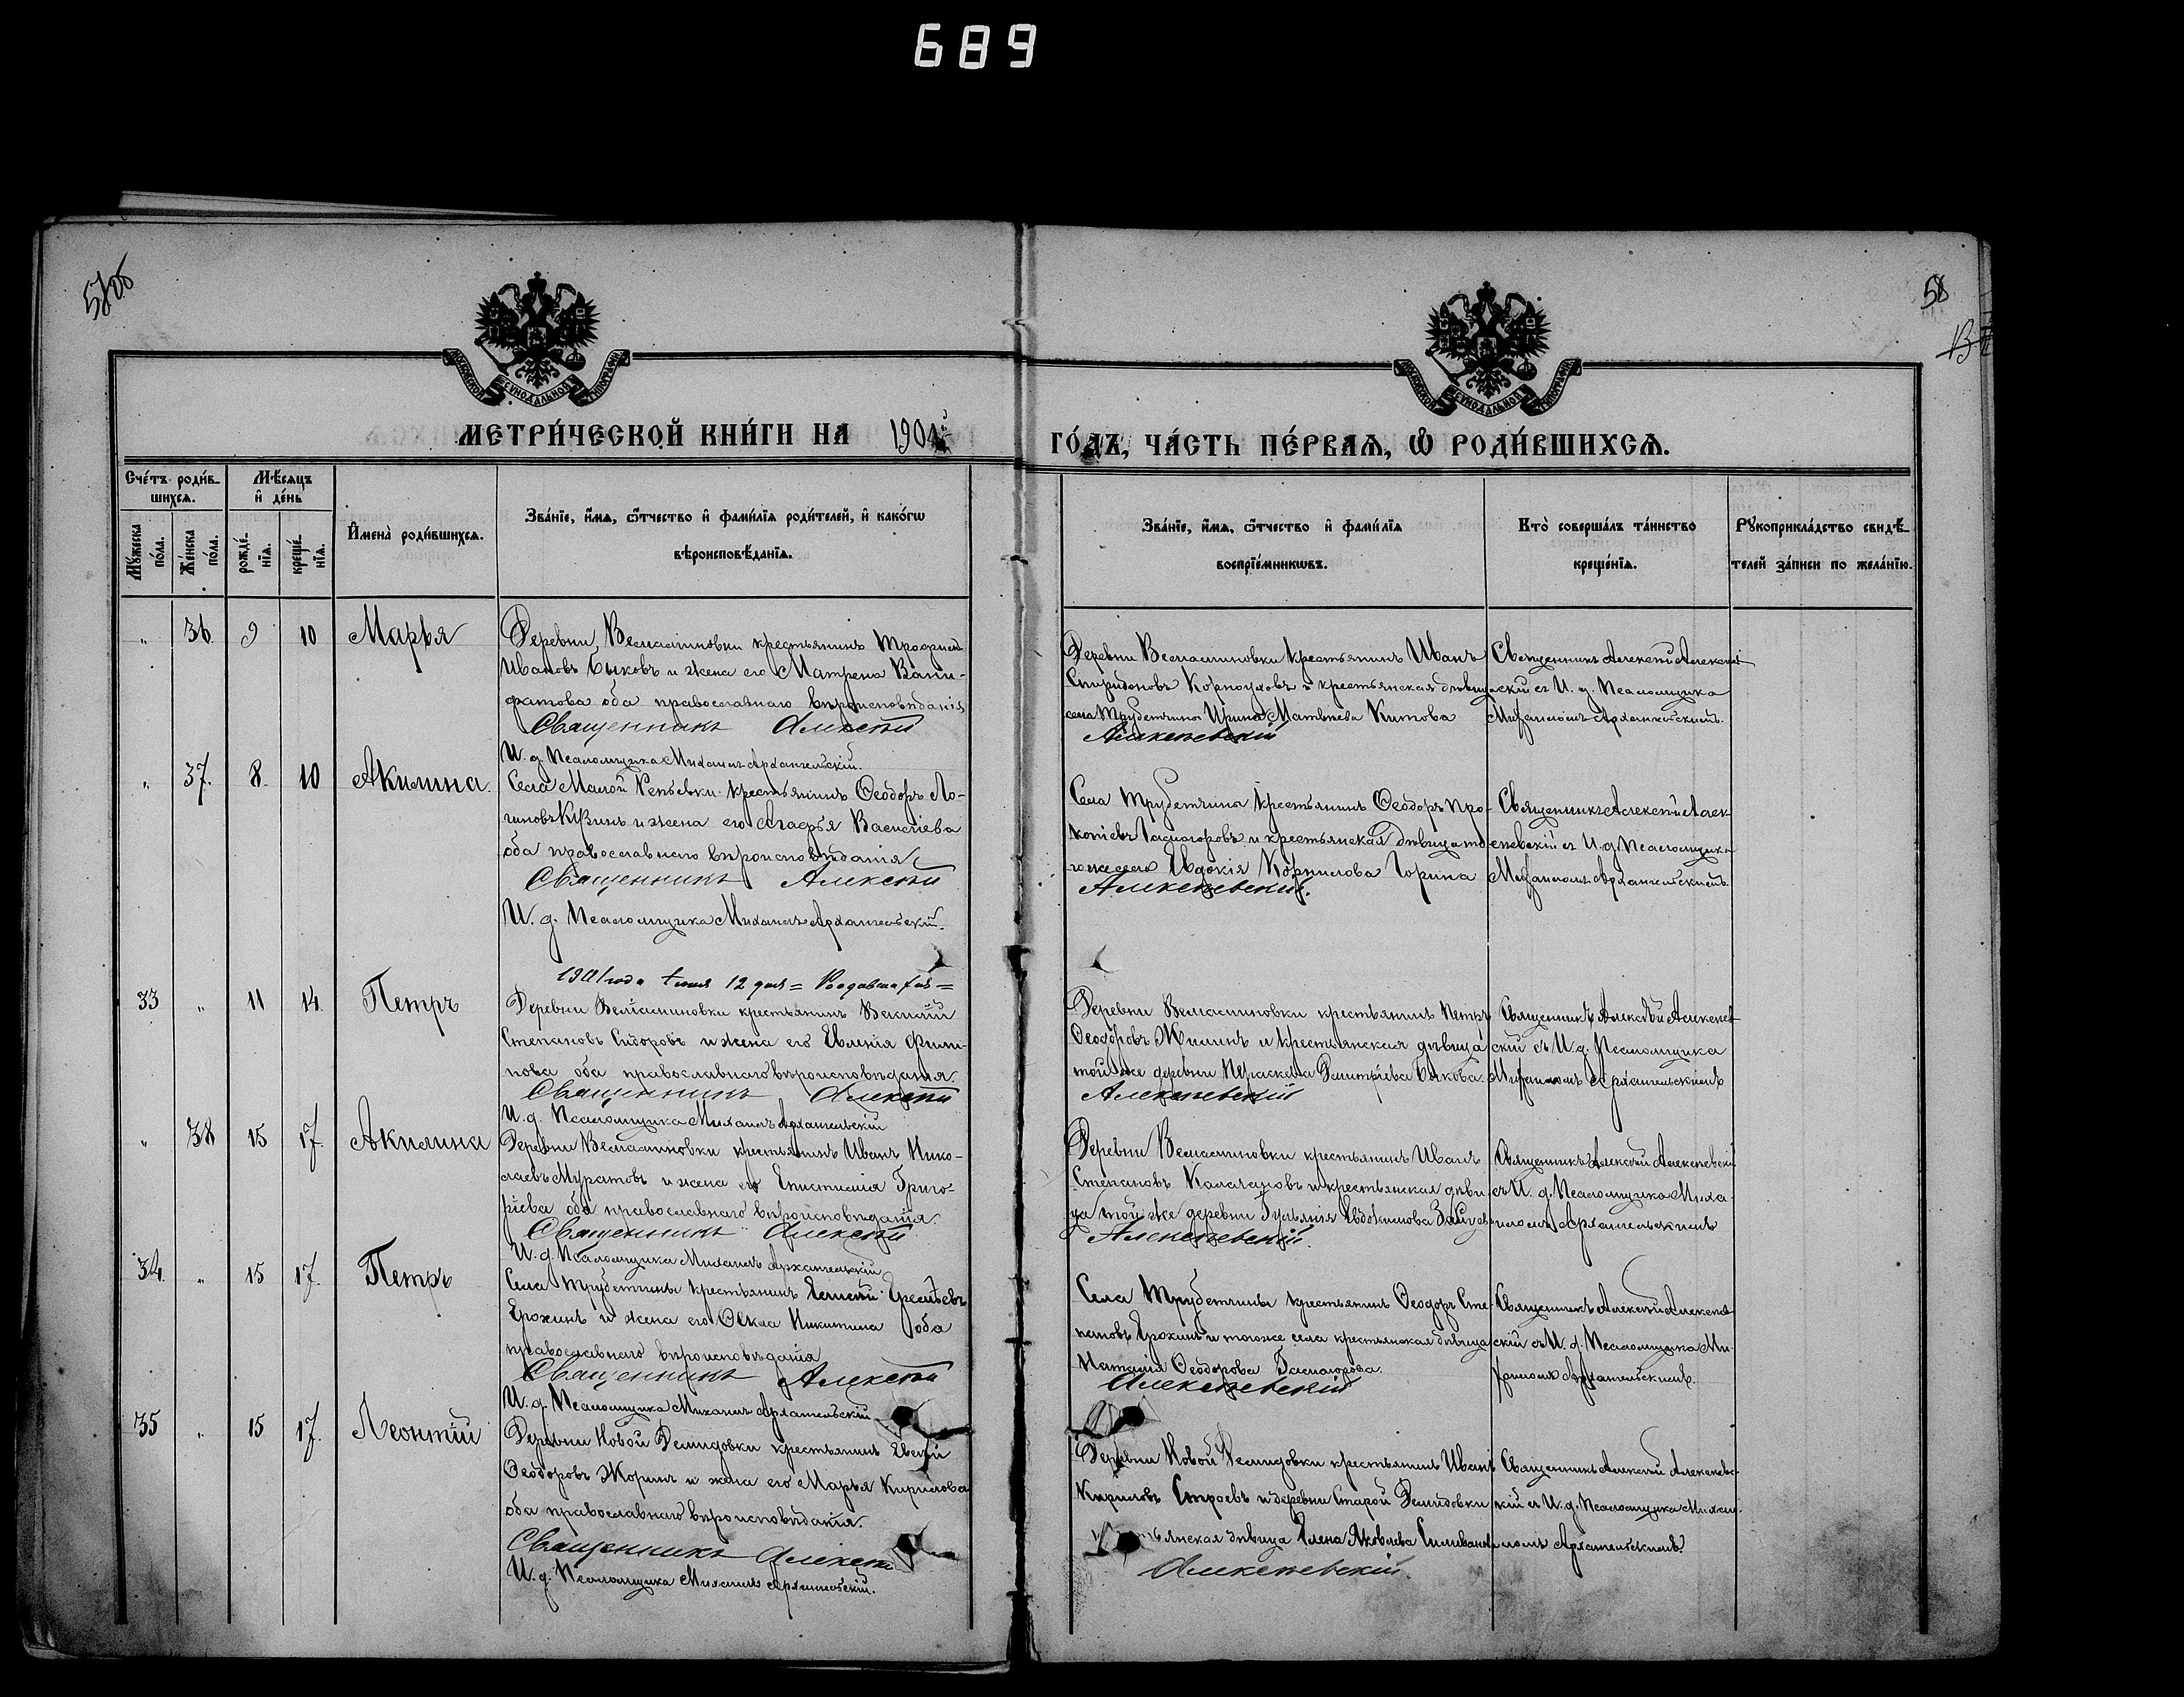 689
57об
58
МОСКОВСКОЙ СѴНОДАЛЬНОЙ ТИПОГРАФІИ
МОСКОВСКОЙ СѴНОДАЛЬНОЙ ТИПОГРАФІИ
МЕТРИ́ЧЕСКОЙ КНИ́ГИ НА 1901й
ГО́ДЪ, ЧА́СТЬ ПЕ́РВАѦ, Ѽ РОДИ́ВШИХСѦ.
Сче́тъ роди́в-
шихсѧ.
Мѣ́сѧцъ
и҆ де́нь
Мꙋ́жеска по́ла.
Же́нска по́ла.
рожде́-
нїѧ.
креще́-
нїѧ.
И҆мена̀ роди́вшихсѧ.
Зва́нїе, и҆́мѧ, ѻ҆́тчество и҆ фами́лїѧ роди́телей, и҆ како́гѡ
вѣроисповѣ́данїѧ.
Зва́нїе, и҆́мѧ, ѻ҆́тчество и҆ фами́лїѧ
воспрїе́мникѡвъ.
Кто̀ соверша́лъ та́инство
креще́нїѧ.
Рꙋкоприкла́дство свидѣ́-
телей за́писи по жела́нїю.
„ 36 9 10 Марья
Деревни Веліаминовки крестьянинъ Трофимъ
Ивановъ Быковъ и жена его Матрена Вани-
фатова оба православнаго вѣроисповѣданія
Священникъ Алексѣй
И. д. Псаломщика Михаилъ Архангельскій.
Деревни Веліаминовки крестьянинъ Иванъ
Спиридоновъ Корноуховъ и крестьянская дѣвица
села Трубетчина Ирина Матвѣева Китова
Алексѣевскій
Священникъ Алексѣй Алексѣев
скій съ И. д. Псаломщика
Михаиломъ Архангельскимъ.
„ 37. 8. 10 Акилина.
Села Малой Репьевки крестьянинъ Ѳеодоръ Ло-
гиновъ Кузинъ и жена его Агафья Васильева
оба православнаго вѣроисповѣданія
Священникъ Алексѣй
И. д. Псаломщика Михаилъ Архангельскій.
Села Трубетчина крестьянинъ Ѳеодоръ Про-
копіевъ и крестьянская дѣвица то-
го же села Евдокія Корнилова Горина
Алексѣевскій.
Священникъ Алексѣй Алек-
сѣевскій съ И. д. Псаломщика
Михаиломъ Архангельскимъ.
33 „ 11 14. Петръ
1901 года 12 дня =
Деревни Веліаминовки крестьянинъ Василій
Степановъ Сидоровъ и жена его Евленія Филип-
пова оба православнаго вѣроисповѣданія.
Священникъ Алексѣй
И. д. Псаломщика Михаилъ Архангельскій
Деревни Веліаминовки крестьянинъ Петръ
Ѳеодоровъ Жилинъ и крестьянская дѣвица
той же деревни Параскева Димитріева Быкова.
Алексѣевскій
Священникъ Алексѣй Алексѣев
скій съ И. д. Псаломщика
Михаиломъ Архангельскимъ
„ 38 15 17. Акилина
Деревни Веліаминовки крестьянинъ Иванъ Нико-
лаевъ Муратовъ и жена его Епистимія Григо-
рьева оба православнаго вѣроисповѣданія.
Священникъ Алексѣй
И. д. Псаломщика Михаилъ Архангельскій
Деревни Веліаминовки крестьянинъ Иванъ
Степановъ Калачановъ и крестьянская дѣви-
ца той же деревни Гульянія Евдокимова
Алексѣевскій.
Священникъ Алексѣй Алексѣевскій
съ И. д. Псаломщика Миха-
иломъ Архангельскимъ
34. „ 15 17. Петръ
Села Трубетчины крестьянинъ Алексѣй Еремѣевъ
Ерохинъ и жена его Ѳекла Никитина оба
православнаго вѣроисповѣданія
Священникъ Алексѣй
И. д. Псаломщика Михаилъ Архангельскій
Села Трубетчины крестьянинъ Ѳеодоръ Сте-
пановъ Ерохинъ и тогоже села крестьянская дѣвица
Наталія Ѳеодорова
Алексѣевскій
Священникъ Алексѣй Алексѣев
скій съ И. д. Псаломщика Ми-
хаиломъ Архангельскимъ.
35 „ 15 17. Леонтій
Деревни Новой Демидовки крестьянинъ Евсей
Ѳеодоровъ Жоринъ и жена его Марья Кирилова
оба православнаго вѣроисповѣданія.
Священникъ Алексѣй
И. д. Псаломщика Михаилъ Архангельскій.
Деревни Новой Демидовки крестьянинъ Иванъ
Кириловъ Строевъ и деревни Старой Демидовки
крестьянская дѣвица Елена Яковлева Силиванова
Алексѣевскій.
Священникъ Алексѣй Алексѣевс-
кій съ И. д. Псаломщика Михаи-
ломъ Архангельскимъ.